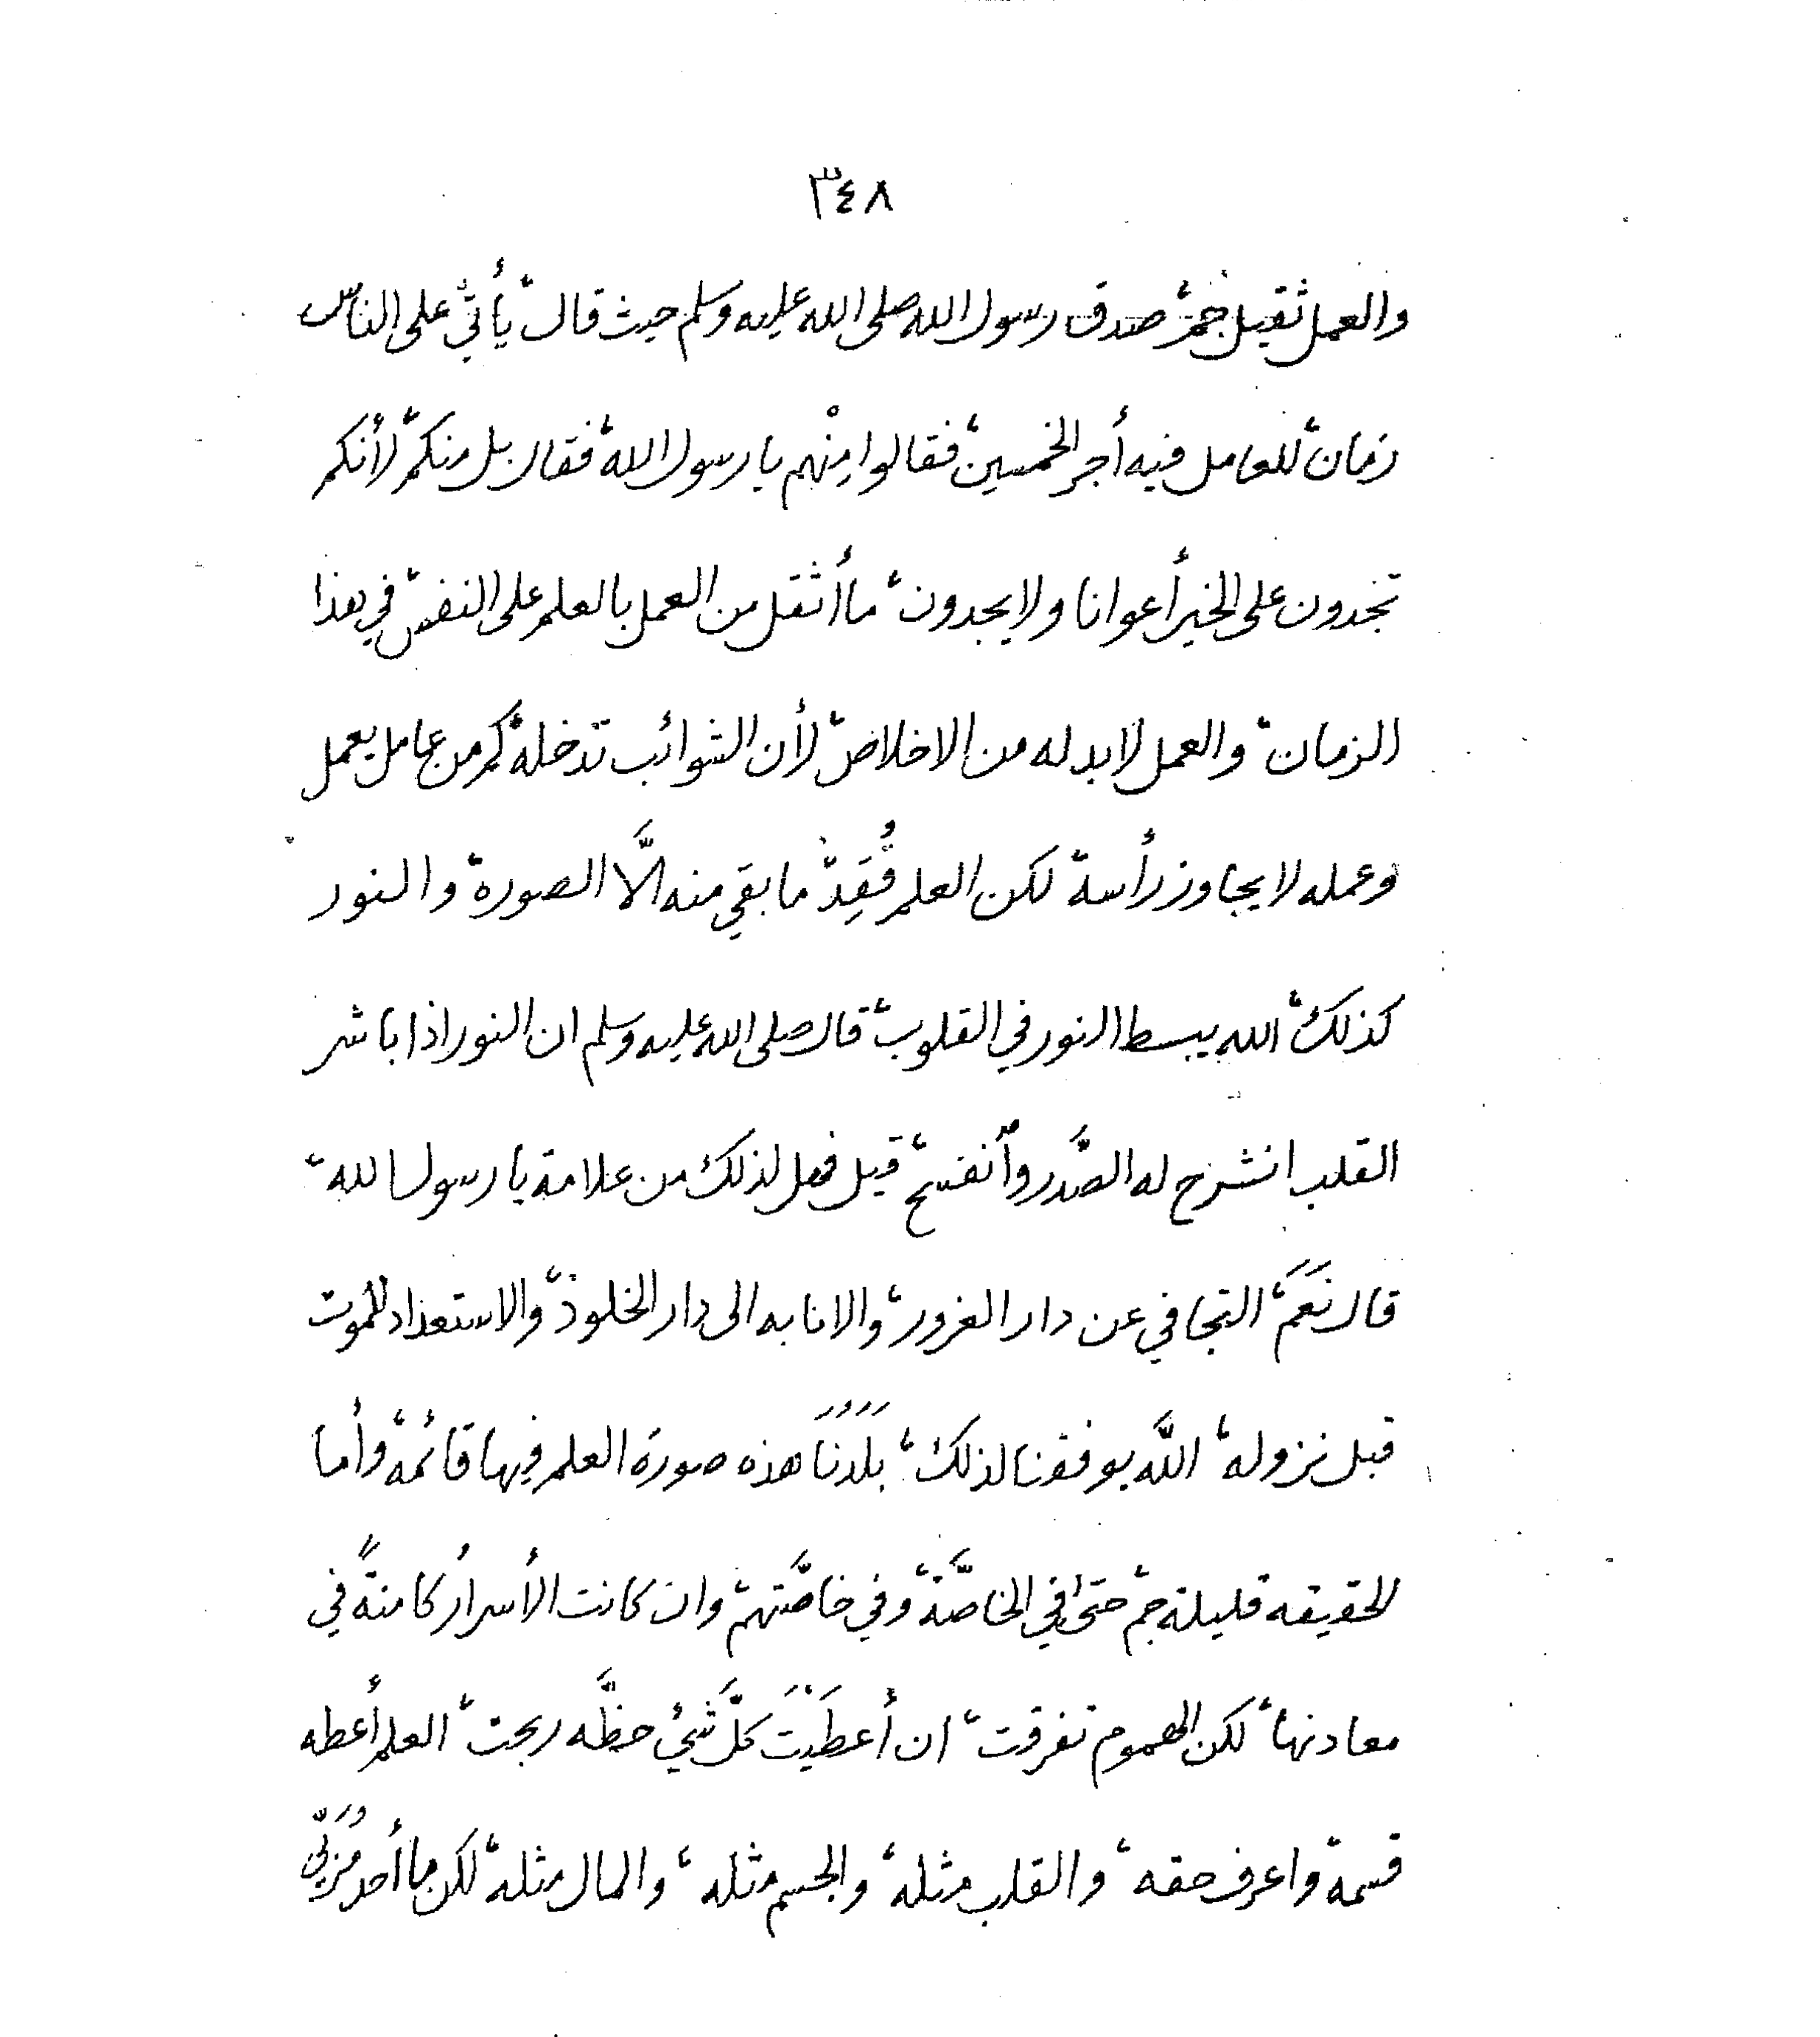 ٣٤٨
والعمل ثقيل جمّ، صدق رسول الله صلى الله عليه وسلم حيث قال، يأتي على الناس
زمان، للعامل فيه أجر الخمسين، فقالوا مِنْهم يا رسول الله، فقال بل منكم، لأنكم
تجدون على الخير أعوانا ولا يجدون، ما أثقل من العمل بالعلم على النفس، في هذا
الزمان، والعمل لابد له من الاخلاص، لأن الشوائب تدخله، كم من عامل يعمل
وعمله لا يجاوز رأسه، لكن العلم فُقِدْ، ما بقي منه الَّا الصورة، والنور
كذلك، الله يبسط النور في القلوب، قال صلى الله عليه وسلم ان النور اذا باشر
القلب انشرح له الصَّدر وٱنفسح، قيل فهل لذلك من علامة يا رسول الله،
قال نَعَمْ، التجافي عن دار الغرور، والانابه الى دار الخلود، والاستعداد للموت
قبل نزوله، اللَّه يوفقنا لذلك، بَلَدُنَا هذه صورة العلم فيها قائمه، وأما
الحقيقه قليلة جمّ، حتى في الخاصَّة، وفي خاصَّتهم، وان كانت الأسرارُ كامنةً في
معادنها، لكن الهموم تفرقت، ان أعطَيْتَ كلَّ شَيْء حظَّه ربحت، العلم أعطه
قسمه، واعرف حقه، والقلب مثله، والجسم مثله، والمال مثله، لكن ما أحد مُرَبِّي